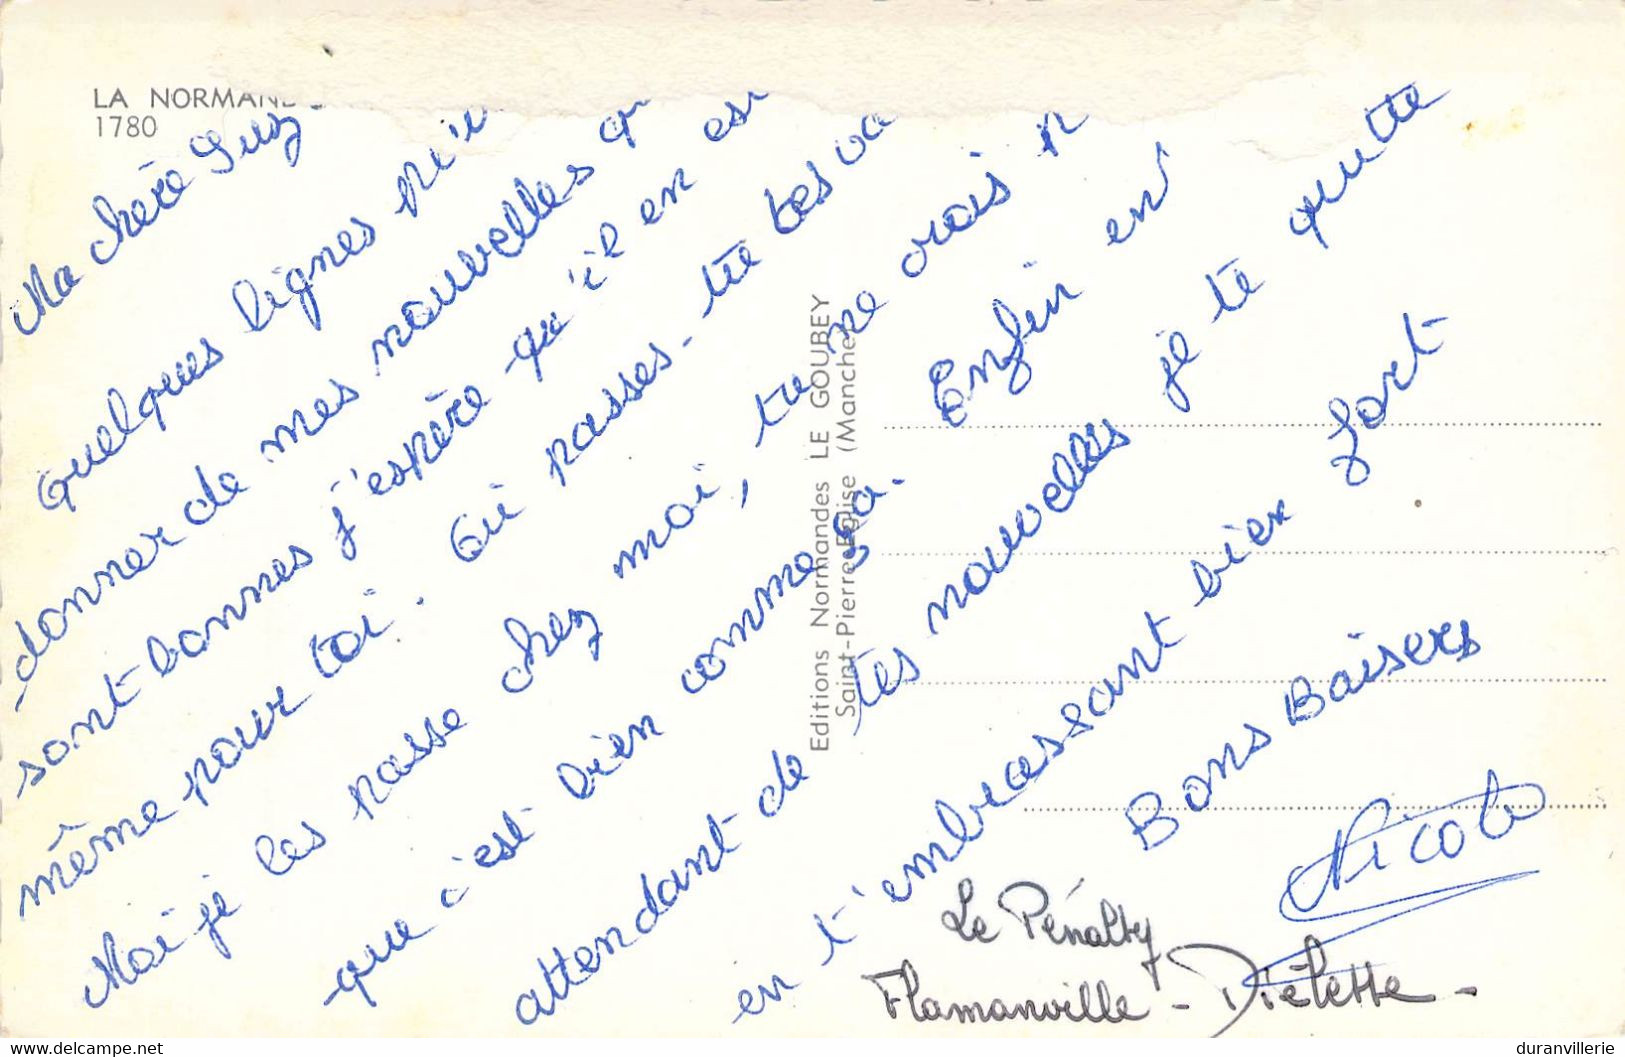 LA NORMAND
1780
Ma chère Suz
quelques lignes p
donner de mes nouvelles
sont bonnes j'espère qu'il en est
même pour toi. Où passes-tu tes va
Moi je les passe chez moi, tu me crois
que c'est bien comme ça. Enfin en
attendant de tes nouvelles je te quitte
en t'embrassant bien fort
Bons Baisers
Nicole
Le Pénalty
Flamanville - Diélette -
Editions Normandes LE GOUBEY
Saint-Pierre-Eglise (Manche)
delcampe.net
duranvillerie